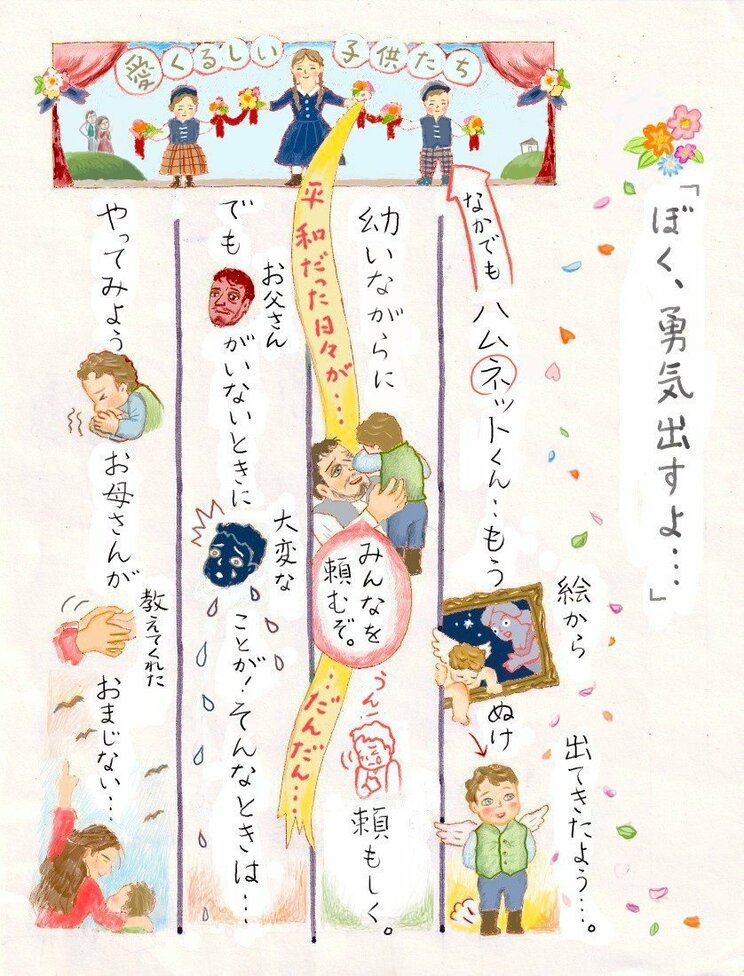 愛くるしい 子供たち
「ぼく、勇気出すよ…」
なかでも
ハムネットくん…もう
絵から
ぬけ
出てきたよう…。
幼いながらに
みんなを
頼むぞ。
うん!
頼もしく。
平和だった日々が…
…だんだん…
でも
お父さん
がいないときに
大変な
ことが!そんなときは…
やってみよう
お母さんが
教えてくれた
おまじない…